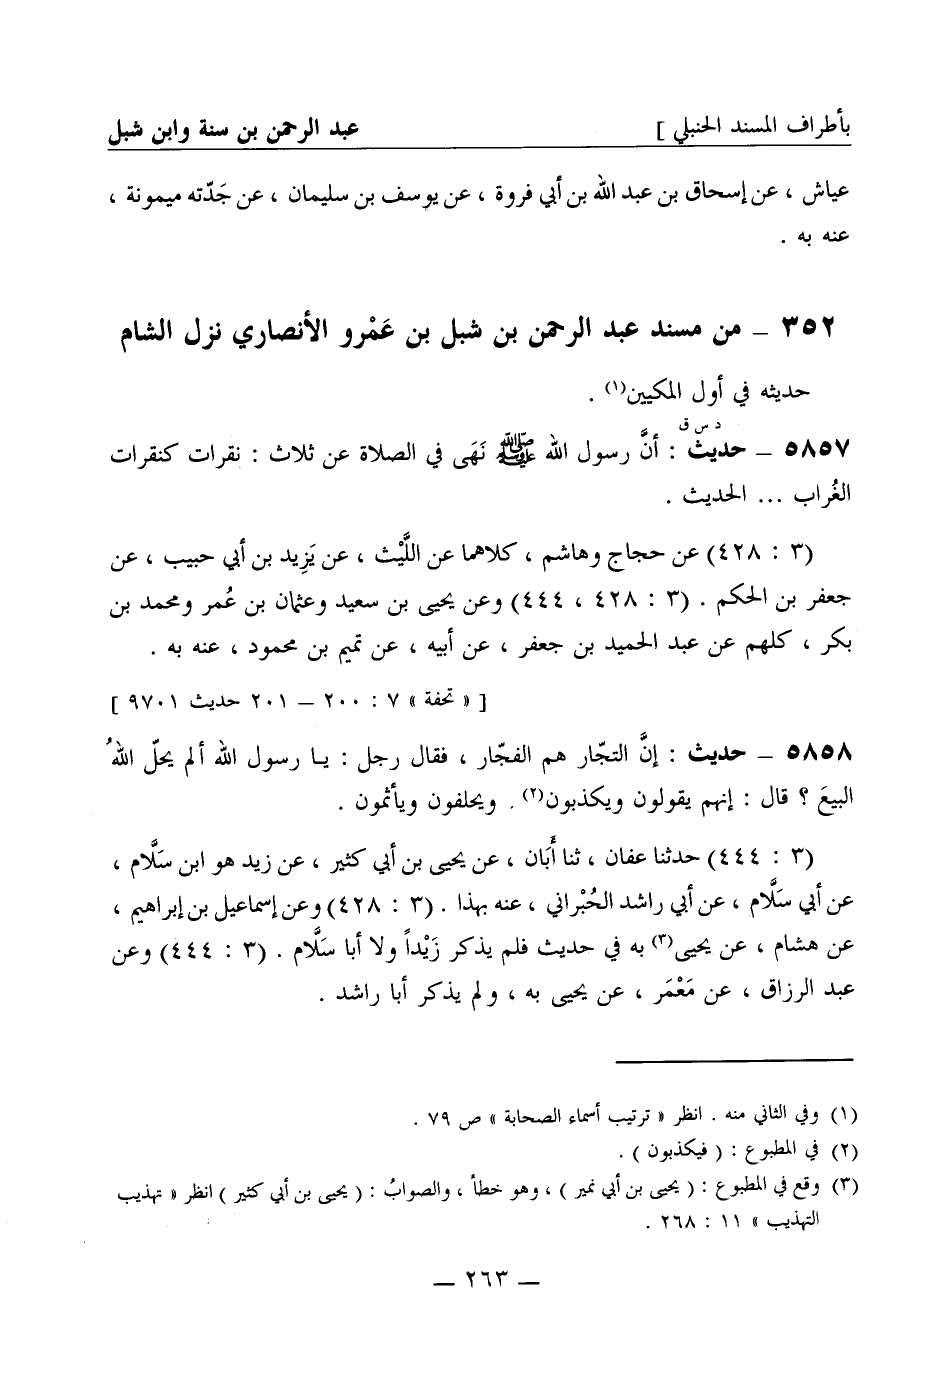 بأطراف المسند الحنبلي ]
عبد الرحمن بن سنة وابن شبل
عياش ، عن إسحاق بن عبد الله بن أبي فروة ، عن يوسف بن سليمان ، عن جَدّته ميمونة ،
عنه به .
٣٥٢ ـ من مسند عبد الرحمن بن شبل بن عَمْرو الأنصاري نزل الشام
حديثه في أول المكيين(١) .
د س ق
٥٨٥٧ ـ حديث : أنَّ رسول الله ﷺ نَهَى في الصلاة عن ثلاث : نقرات كنقرات
الغُراب ... الحديث .
(٣ : ٤٢٨) عن حجاج وهاشم ، كلاهما عن اللَّيْث ، عن يَزِيد بن أبي حبيب ، عن
جعفر بن الحكم . (٣ : ٤٢٨ ، ٤٤٤) وعن يحيى بن سعيد وعثمان بن عُمر ومحمد بن
بكر ، كلهم عن عبد الحميد بن جعفر ، عن أبيه ، عن تميم بن محمود ، عنه به .
[ « تحفة » ٧ : ٢٠٠ – ٢٠١ حديث ٩٧٠١ ]
٥٨٥٨ ـ حديث : إنَّ التجّار هم الفجّار ، فقال رجل : يا رسول الله ألم يحلّ اللهُ
البيعَ ؟ قال : إنهم يقولون ويكذبون(٢) . ويحلفون ويأثمون .
(٣ : ٤٤٤) حدثنا عفان ، ثنا أَبَان ، عن يحيى بن أبي كثير ، عن زيد هو ابن سَلَّام ،
عن أبي سَلَّام ، عن أبي راشد الحُبْراني ، عنه بهذا . (٣ : ٤٢٨) وعن إسماعيل بن إبراهيم ،
عن هشام ، عن يحيى(٣) به في حديث فلم يذكر زَيْداً ولا أبا سلَّام . (٣ : ٤٤٤) وعن
عبد الرزاق ، عن مَعْمَر ، عن يحيى به ، ولم يذكر أبا راشد .
(١) وفي الثاني منه . انظر « ترتيب أسماء الصحابة » ص ٧٩ .
(٢) في المطبوع : ( فيكذبون ) .
(٣) وقع في المطبوع : ( يحيى بن أبي نمير ) ، وهو خطأ ، والصوابُ : ( يحيى بن أبي كثير ) انظر « تهذيب
التهذيب » ١١ : ٢٦٨ .
— ٢٦٣ —